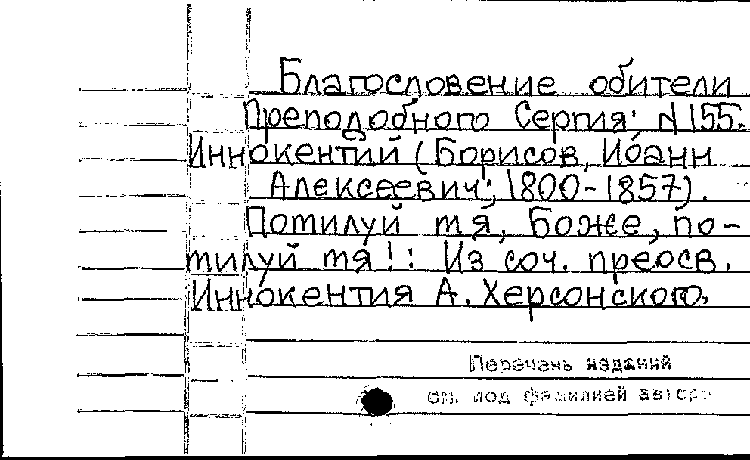 Благословение обители
Преподобного Сергия: N 155.
Иннокентий (Борисов, Иоанн
Алексеевич; 1800-1857).
Потилуй тя, Боже, по-
тилуй тя!: Из соч. преосв.
Иннокентия А. Херсонского.
Перечень изданий
см. под фамилией автора